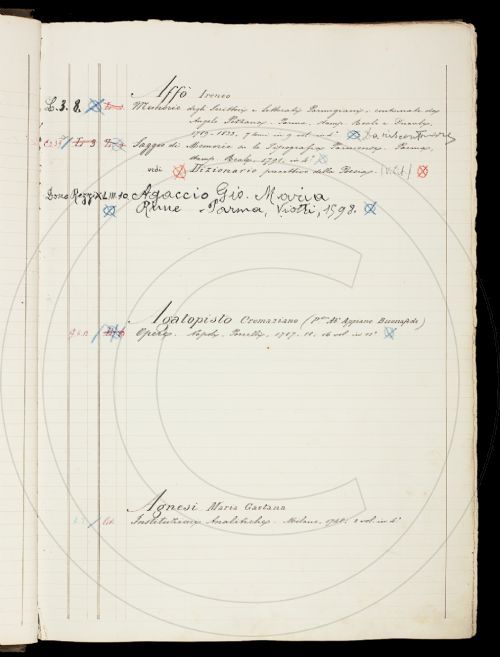 Affò Ireneo
L. 3. 8. Memorie degli Scrittori e letterati Parmigiani, continuate da
Angelo Pezzana. Parma, stamp. Reale e Ducale,
1789-1833, 7 tomi in 9 vol. in 4°
3 Saggio di Memorie su la Tipografia Parmense. Parma,
stamp. Reale, 1791. in 4°
vedi Dizionario precettivo della Poesia.
Dono Rezzi XLIII 10 Agaccio Gio. Maria
Rime Parma, Viotti, 1598.
Agatopisto Cromaziano (Appiano Buonafede)
Opere. Napoli, Porcelli, 1787. 16 vol. in 12°
Agnesi Maria Gaetana
Instituzioni Analitiche. Milano, 1748. 2 vol. in 4°